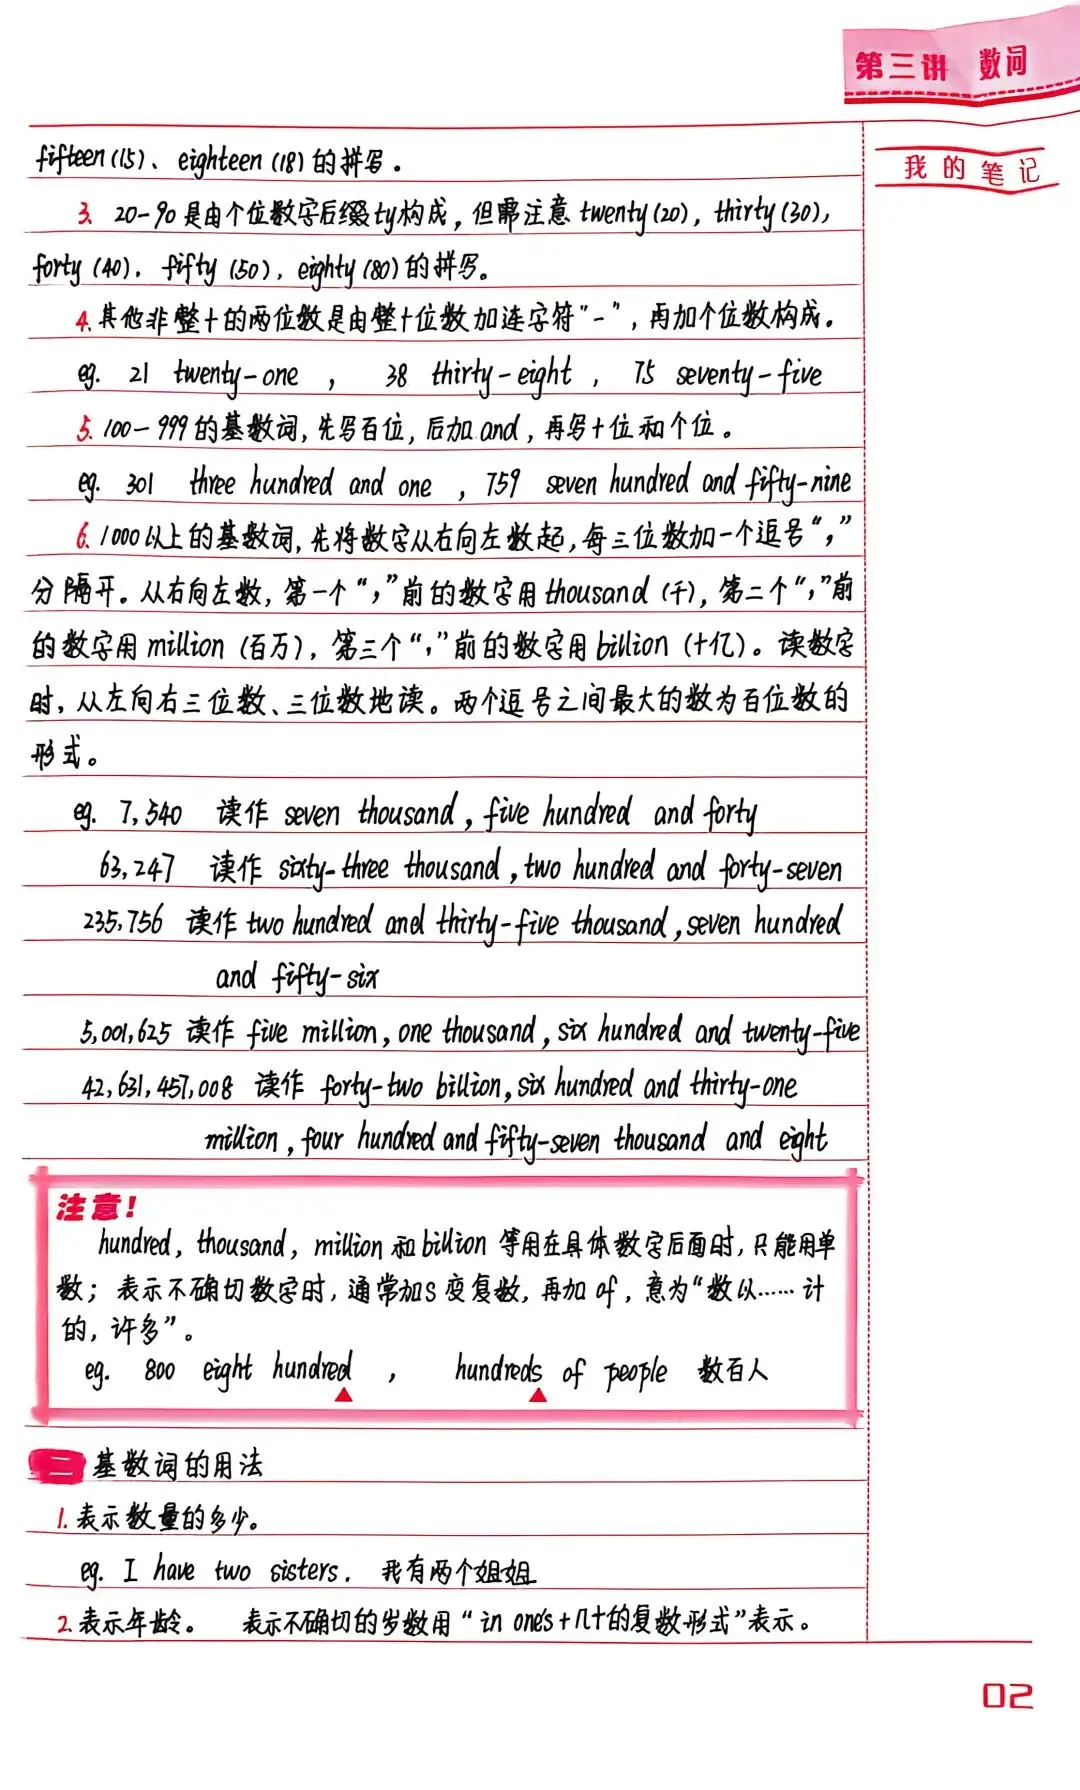 第三讲 数词
我的笔记
fifteen (15)、eighteen (18) 的拼写。
3. 20-90 是由个位数字后缀ty构成，但需注意 twenty (20), thirty (30),
forty (40), fifty (50), eighty (80) 的拼写。
4. 其他非整十的两位数是由整十位数加连字符“-”，再加个位数构成。
eg. 21 twenty-one , 38 thirty-eight , 75 seventy-five
5. 100-999 的基数词, 先写百位, 后加 and, 再写十位和个位。
eg. 301 three hundred and one , 759 seven hundred and fifty-nine
6. 1000以上的基数词, 先将数字从右向左数起, 每三位数加一个逗号“,”
分隔开。从右向左数, 第一个“,”前的数字用thousand (千), 第二个“,”前
的数字用 million (百万), 第三个“,”前的数字用 billion (十亿)。读数字
时, 从左向右三位数、三位数地读。两个逗号之间最大的数为百位数的
形式。
eg. 7,540 读作 seven thousand, five hundred and forty
63,247 读作 sixty-three thousand, two hundred and forty-seven
235,756 读作 two hundred and thirty-five thousand, seven hundred
and fifty-six
5,001,625 读作 five million, one thousand, six hundred and twenty-five
42,631,457,008 读作 forty-two billion, six hundred and thirty-one
million, four hundred and fifty-seven thousand and eight
注意!
hundred, thousand, million 和 billion 等用在具体数字后面时, 只能用单
数; 表示不确切数字时, 通常加s变复数, 再加 of, 意为“数以……计
的, 许多”。
eg. 800 eight hundred , hundreds of people 数百人
二 基数词的用法
1. 表示数量的多少。
eg. I have two sisters. 我有两个姐姐
2. 表示年龄。 表示不确切的岁数用“in one's+几十的复数形式”表示。
02